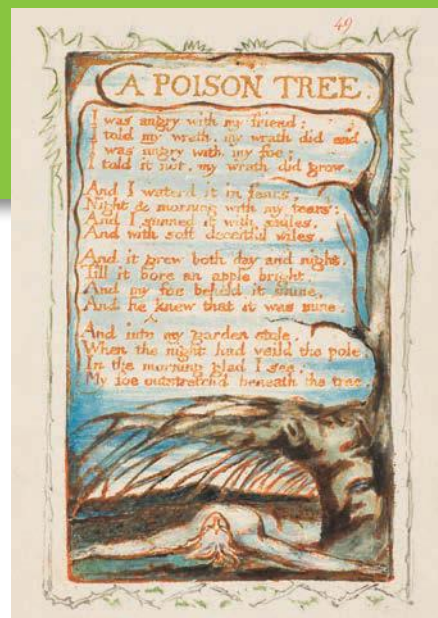 49
A POISON TREE.
I was angry with my friend:
I told my wrath, my wrath did end.
I was angry with my foe:
I told it not, my wrath did grow.
And I waterd it in fears,
Night & morning with my tears:
And I sunned it with smiles,
And with soft deceitful wiles.
And it grew both day and night,
Till it bore an apple bright.
And my foe beheld it shine,
And he knew that it was mine.
And into my garden stole,
When the night had veild the pole;
In the morning glad I see,
My foe outstretchd beneath the tree.